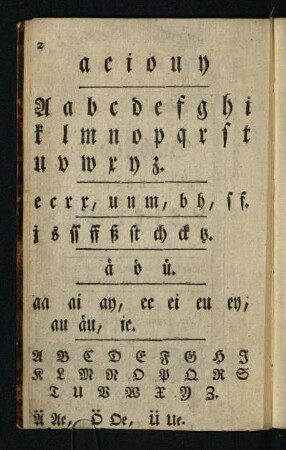 2
a e i o u y
A a b c d e f g h i
k l m n o p q r ſ t
u v w x y z.
e c r x, u n m, b h, ſ f.
j s ſſ ff ß ſt ch ck tz.
aͤ oͤ uͤ.
aa ai ay, ee ei eu ey,
au aͤu, ie.
A B C D E F G H I
K L M N O P Q R S
T U V W X Y Z.
Ä Ae, Ö Oe, Ü Ue.